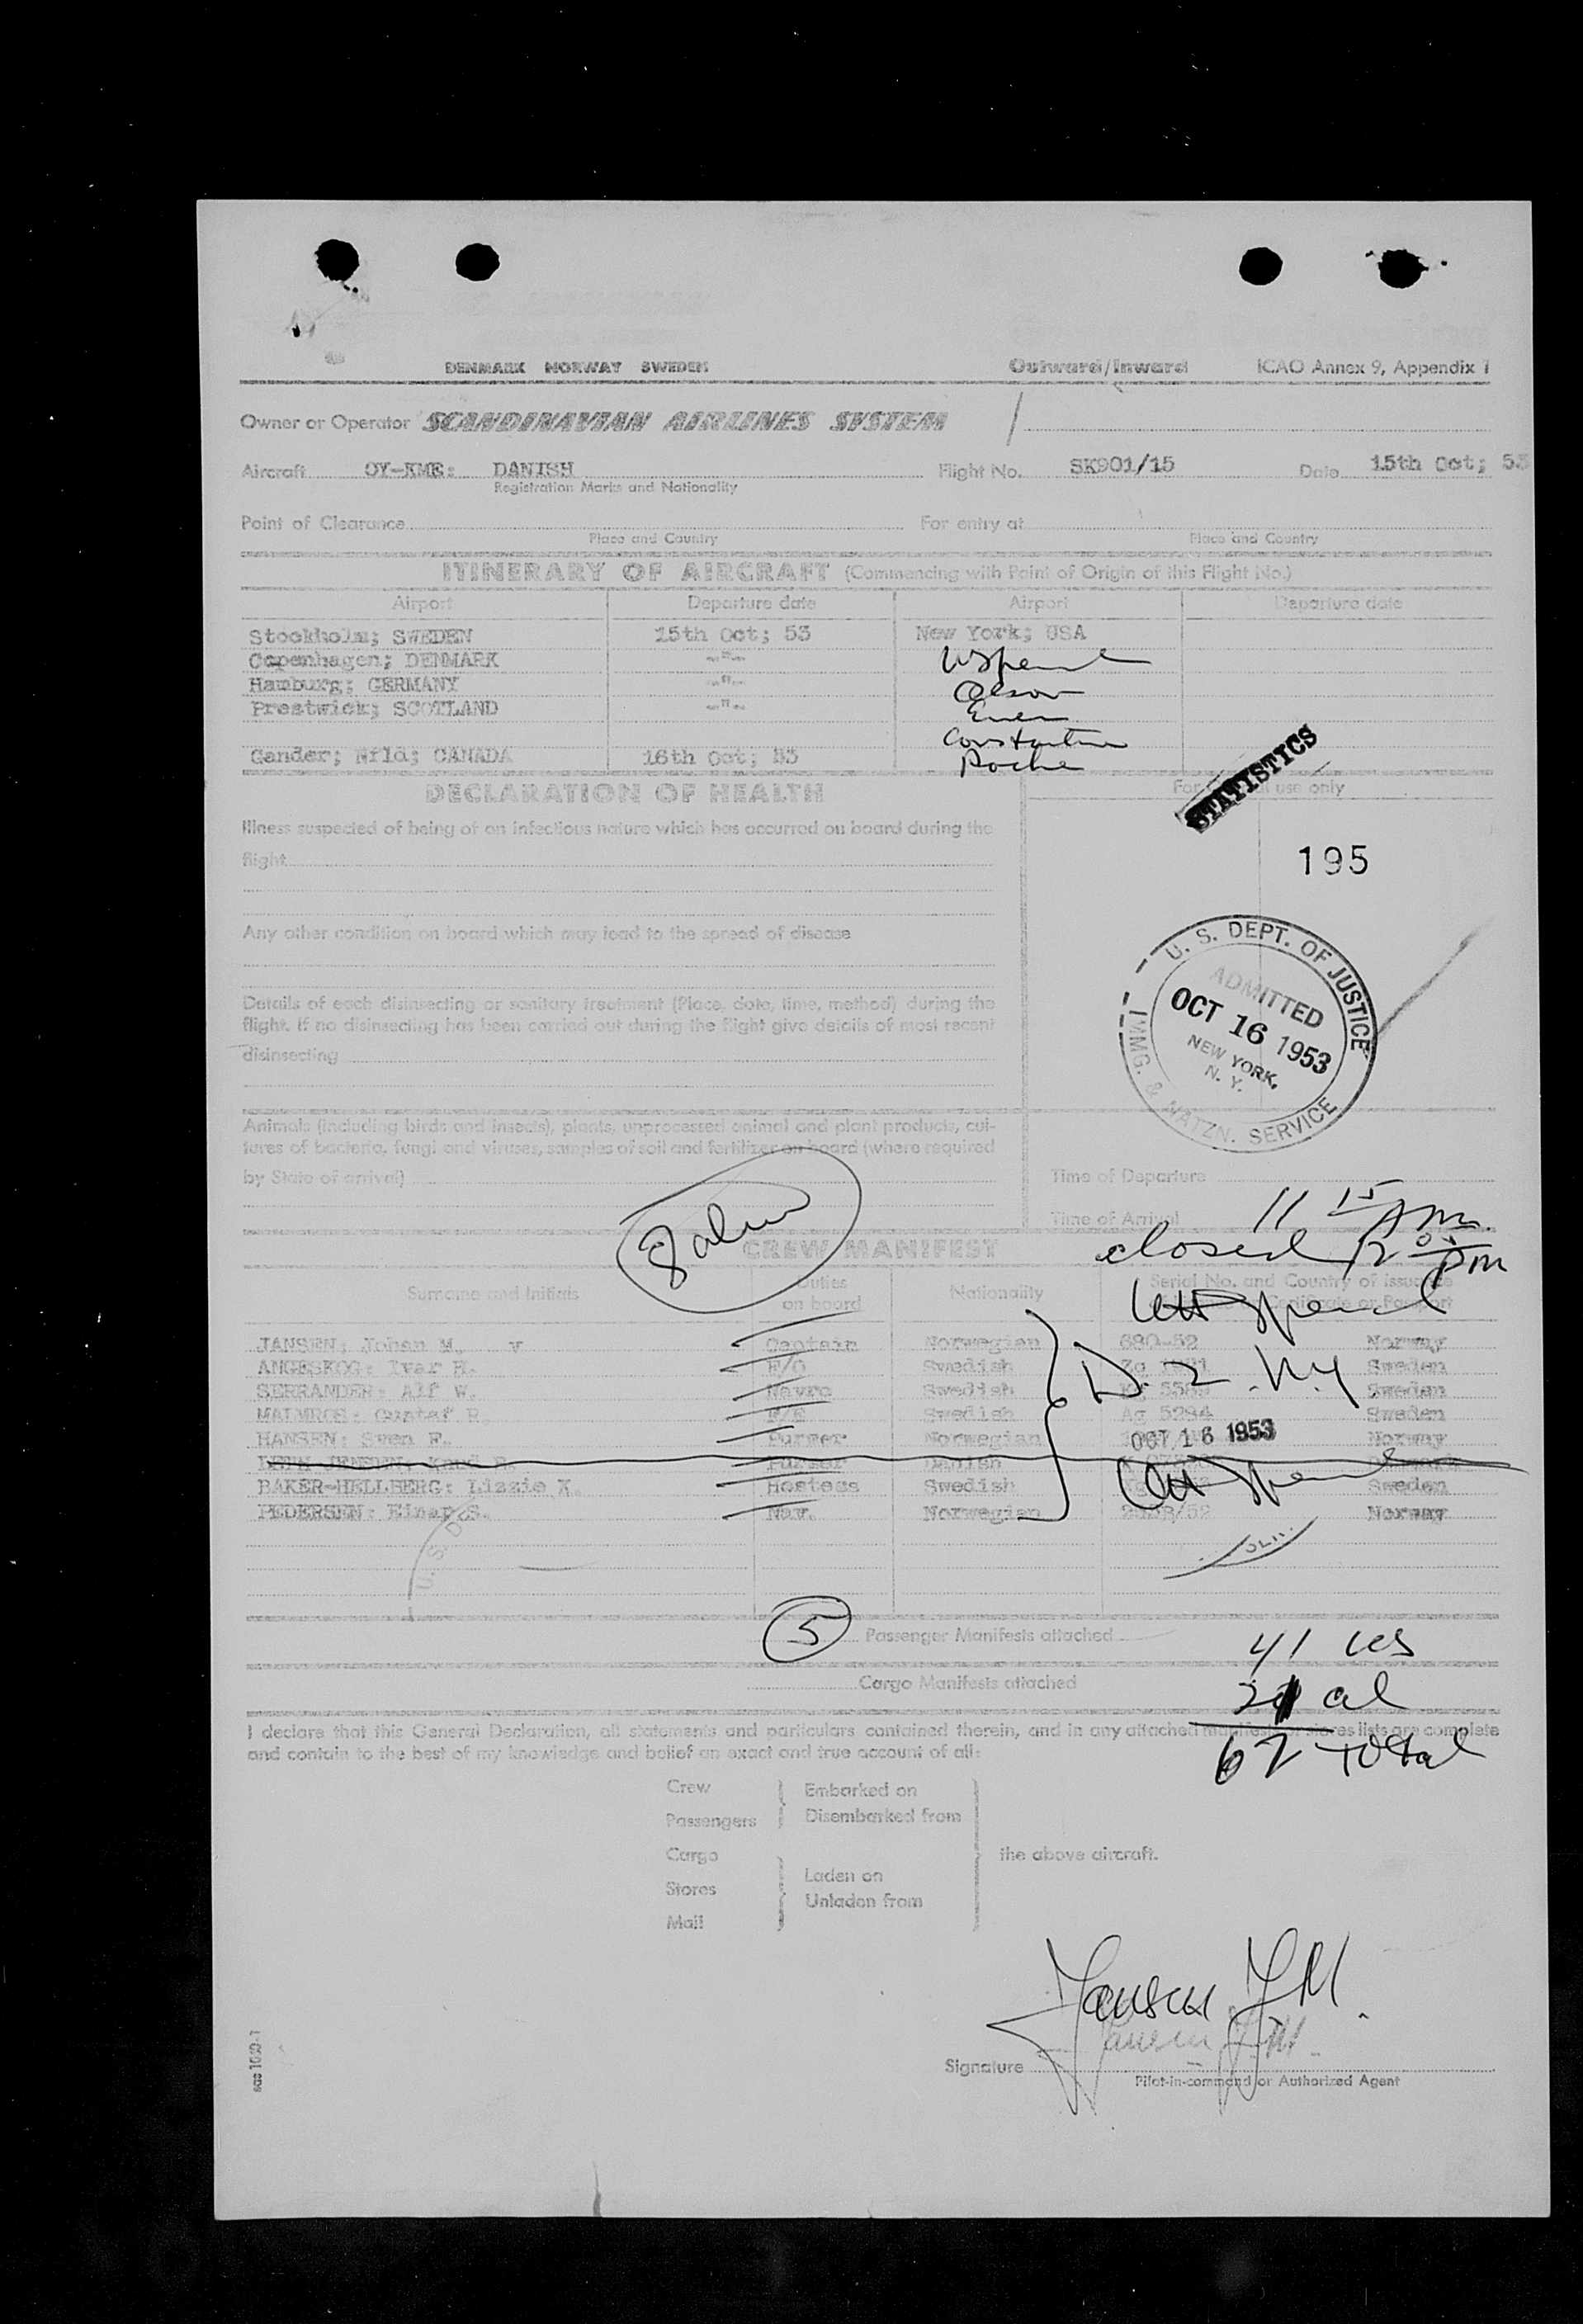 DENMARK NORWAY SWEDEN Outward/Inward ICAO Annex 9, Appendix 1
Owner or Operator SCANDINAVIAN AIRLINES SYSTEM
Aircraft OY-KME: DANISH Flight No. SK901/15 Date 15th Oct; 53
Registration Marks and Nationality
Point of Clearance For entry at
Place and Country Place and Country
ITINERARY OF AIRCRAFT (Commencing with Point of Origin of this Flight No.)
Airport Departure date Airport Departure date
Stockholm; SWEDEN 15th Oct; 53 New York; USA
Copenhagen; DENMARK -"-
Hamburg; GERMANY -"- Olson
Prestwick; SCOTLAND -"-
Constantine
Gander; Nfld; CANADA 16th Oct; 53 Roche
STATISTICS
DECLARATION OF HEALTH For use only
Illness suspected of being of an infectious nature which has occurred on board during the
flight
195
Any other condition on board which may lead to the spread of disease
U. S. DEPT. OF JUSTICE
ADMITTED
OCT 16 1953
NEW YORK,
N. Y.
IMMG. & NATZN. SERVICE
Details of each disinsecting or sanitary treatment (Place, date, time, method) during the
flight. If no disinsecting has been carried out during the flight give details of most recent
disinsecting
Animals (including birds and insects), plants, unprocessed animal and plant products, cul-
tures of bacteria, fungi and viruses, samples of soil and fertilizer on board (where required
by State of arrival)
Time of Departure
Time of Arrival 11 15 AM
closed 12 05 PM
CREW MANIFEST
Surname and Initials Duties on board Nationality Serial No. and Country of issuance of Certificate or Passport
JANSEN: Johan M. Captain Norwegian 680-52 Norway
ANGESKOG: Ivar H. F/O Swedish Sweden
SERRANDER: Alf W. Navro Swedish Sweden
MALMROS: Gustaf R. F/E Swedish Ag 5294 Sweden
HANSEN: Sven F. Purser Norwegian Norway
Purser Danish
BAKER-HELLBERG: Lizzie K. Hostess Swedish Sweden
PEDERSEN: Einar S. Nav. Norwegian Norway
D. 2. N.Y
OCT 16 1953
U. S. D
5 Passenger Manifests attached 41 ces
Cargo Manifests attached 21 al
62 Total
I declare that this General Declaration, all statements and particulars contained therein, and in any attached manifests or stores lists are complete
and contain to the best of my knowledge and belief an exact and true account of all:
Crew Embarked on
Passengers Disembarked from
Cargo the above aircraft.
Stores Laden on
Mail Unladen from
Jansen J M.
Jansen J. M.
Signature
Pilot-in-command or Authorized Agent